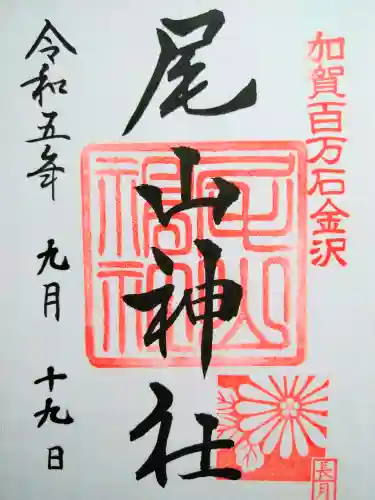 加賀百万石金沢
尾山神社
長月
令和五年 九月 十九日